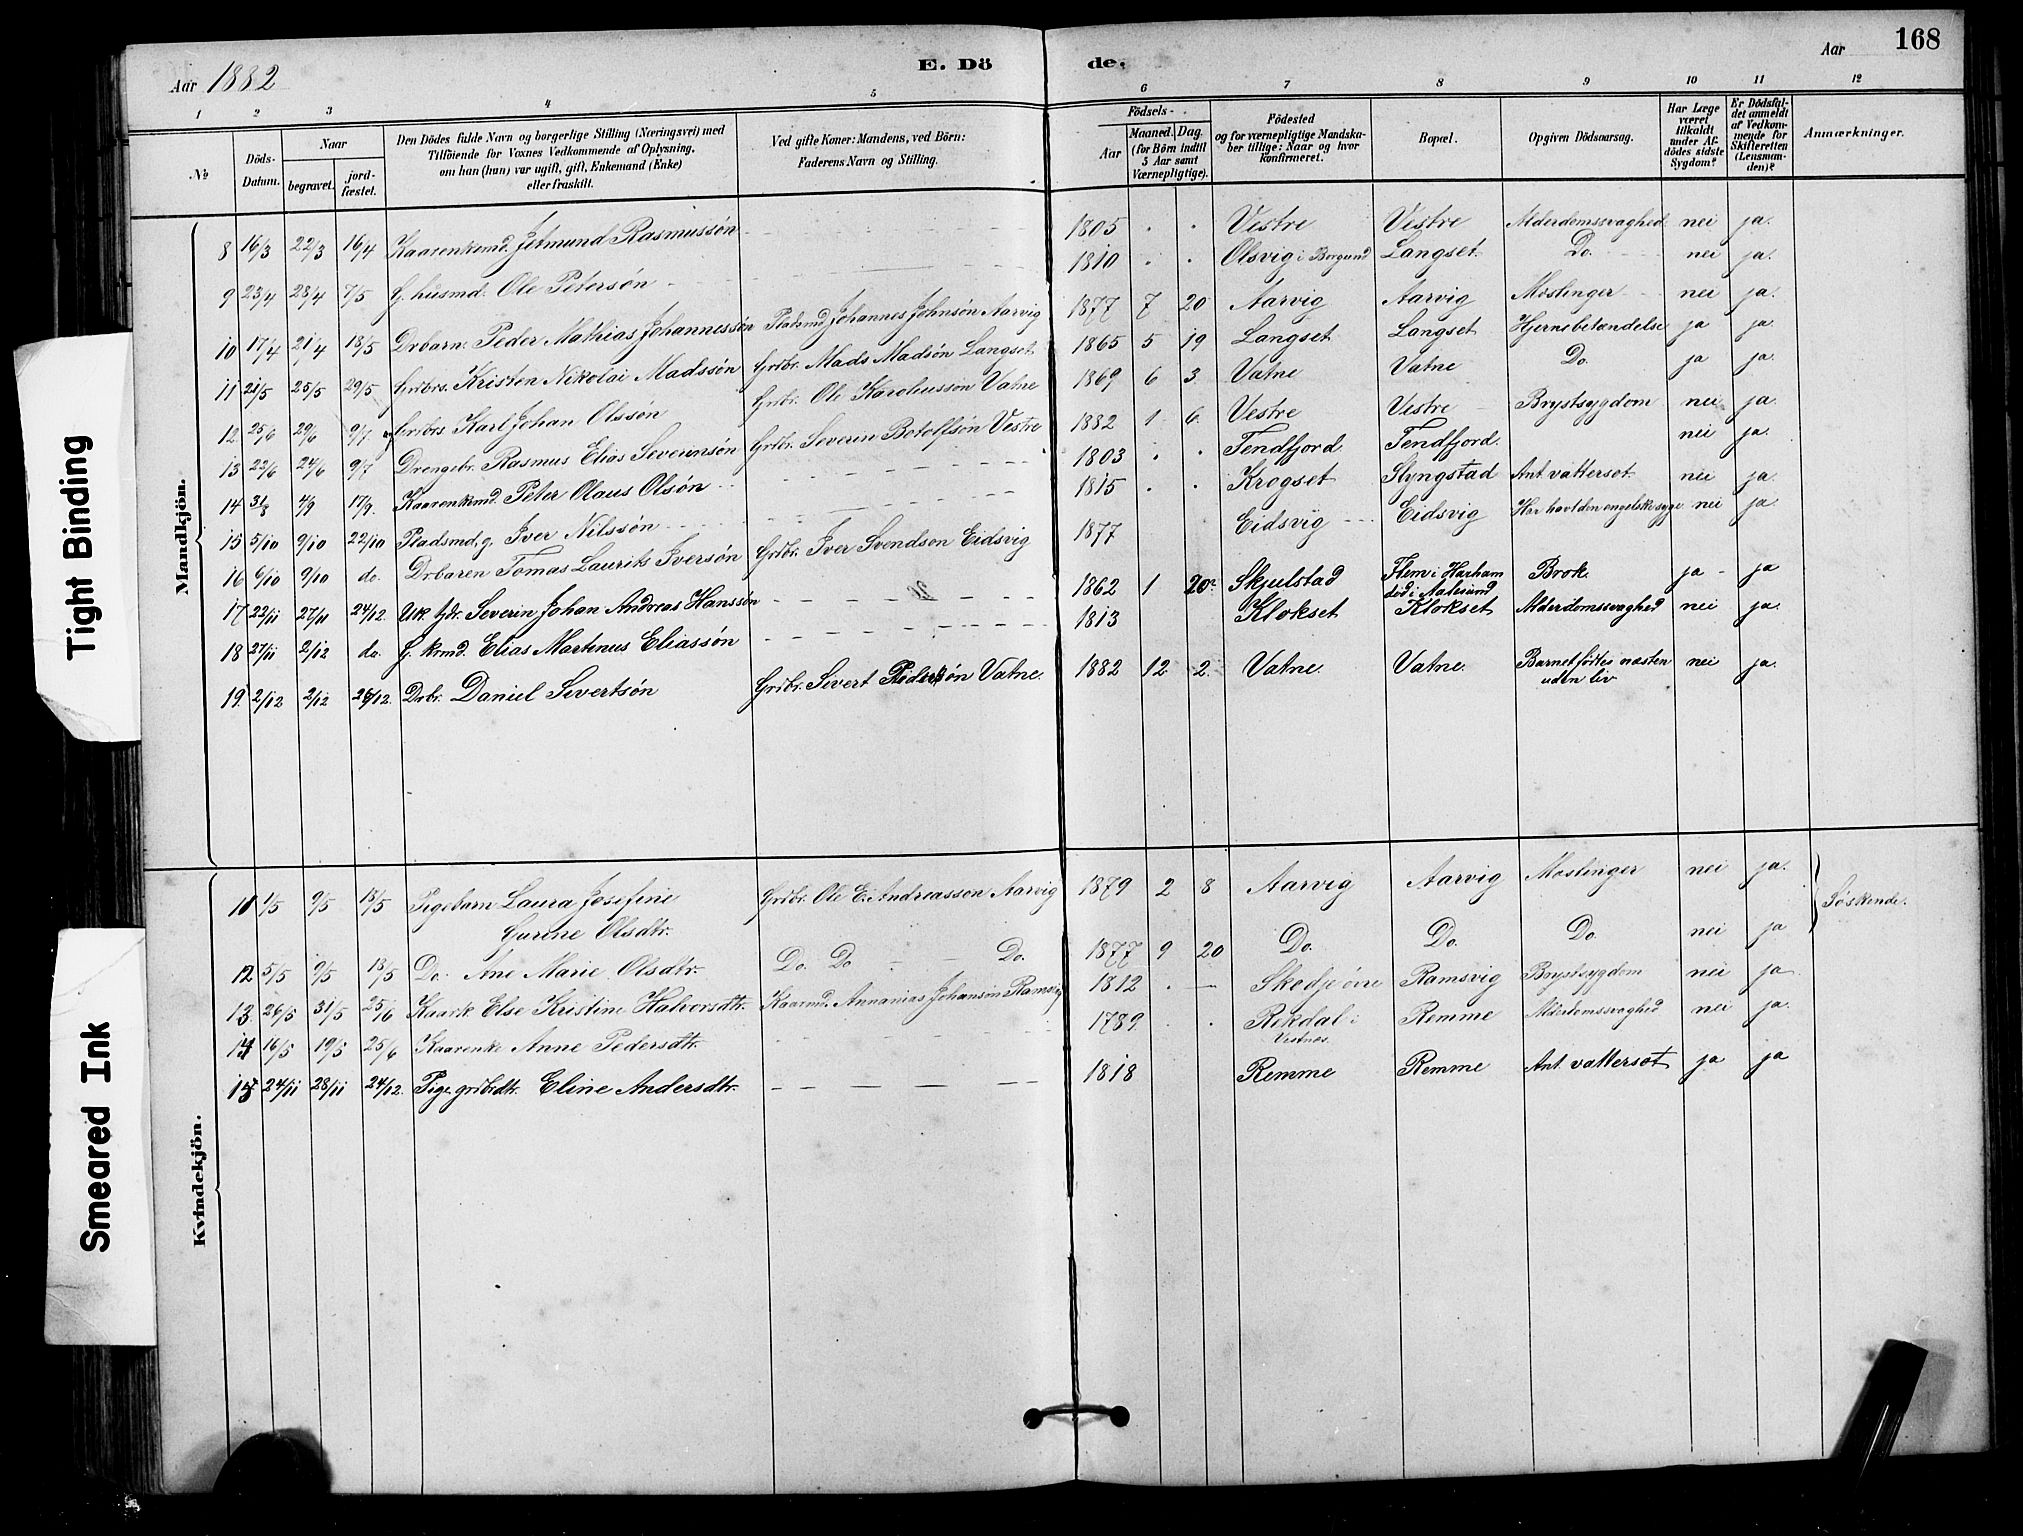 Aar 1882
E. Dö
de.
Aar
168
1 2 3 4 5 6 7 8 9 10 11 12
№
Döds-Datum.
Naar
begravet.
jord-fæstet.
Den Dödes fulde Navn og borgerlige Stilling (Næringsvei) med
Tilföiende for Voxnes Vedkommende af Oplysning,
om han (hun) var ugift, gift, Enkemand (Enke)
eller fraskilt.
Ved gifte Koner: Mandens, ved Börn:
Faderens Navn og Stilling.
Födsels-
Aar
Maaned. Dag.
(for Börn indtil
5 Aar samt
Værnepligtige).
Födested
og for værnepligtige Mandska-
ber tillige: Naar og hvor
konfirmeret.
Bopæl.
Opgiven Dödsaarsag.
Har Læge
været
tilkaldt
under Af-
dödes sidste
Sygdom?
Er Dödsfal-
det anmeldt
af Vedkom-
mende for
Skifteretten
(Lensman-
den)?
Anmærkninger.
Mandkjön.
8 16/3 22/3 16/4 Kaarenkemd. Jetmund Rasmussön 1805 . . Vestre Vestre Alderdomssvaghed nei ja.
9 23/4 28/4 7/5 G. husmd. Ole Petersön 1810 . . Olsvig i Borgund Langset. Do. nei ja.
10 17/4 21/4 18/5 Drbarn. Peder Mathias Johannessön Pladsmd Johannes Johnsön Aarvig 1877 7 20 Aarvig Aarvig Meslinger nei ja.
11 21/5 25/5 29/5 Grdbrs. Kristen Nikolai Madssön Grdbr. Mads Madsön Langset 1865 5 19 Langset Langset Hjernebetændelse ja ja.
12 25/6 29/6 9/7 Grdbrs. Karl Johan Olssön Grdbr. Ole Karolussön Vatne 1869 6 3 Vatne Vatne Do. ja ja.
13 22/6 24/6 9/7 Drengebr. Rasmus Elias Severinsön Grdbr. Severin Botolfsön Vestre 1882 1 6. Vestre Vestre Brystsygdom nei ja.
14 31/8 4/9 17/9. Kaarenkmd. Peter Olaus Olsön 1803 . . Tendfjord Tendfjord. nei ja.
15 5/10 9/10 22/10 Pladsmd, g. Iver Nilssön 1815 . . Krogset Slyngstad Ant. vattersot. nei ja.
16 6/10 9/10 do. Drbaren Tomas Laurits Iversön Grdbr. Iver Svendsen Eidsvig 1877 Eidsvig Eidsvig Har havt den engelske syge nei ja.
17 22/11 27/11 24/12 Svk. Severin Johan Andreas Hanssön 1862 1 20 Skjelstad Flem i Harham död i Aalesund Brok. ja ja
18 27/11 2/12 do. G. krmd. Elias Martinus Eliassön 1813 Klokset Klokset Alderdomssvaghed nei ja.
19. 2/12 2/12 26/12. Drbr. Daniel Sivertsön Grdbr. Sivert Pedersön Vatne. 1882 12 2. Vatne. Vatne. Barnet födtes næsten uden liv nei ja.
Kvindekjön.
11 1/5 9/5 18/5 Pigebarn Laura Josefine Gurine Olsdtr. Grdbr. Ole E. Andreassön Aarvig 1879 2 8 Aarvig Aarvig Meslinger nei ja. Söskende.
12 5/5 9/5 18/5 Do. Ane Marie Olsdtr. Do. Do Do. 1877 9 20 Do. Do. Do. nei ja
13. 26/5 31/5 25/6 Kaark. Else Kristine Halvorsdtr. Kaarmd. Annanias Johansön Ramsvig 1812 . Skodje övre Ramsvig Brystsygdom nei ja.
14 16/5 19/5 25/6 Kaarenke Anne Pedersdtr. 1789. . Rekdal i Vestnes. Remme Alderdomssvaghed nei ja.
15 24/11 28/11 24/12. Pige, grdbrdtr. Eline Andersdtr. 1818 Remme Remme Ant. vattersot ja ja
Tight Binding
Smeared Ink